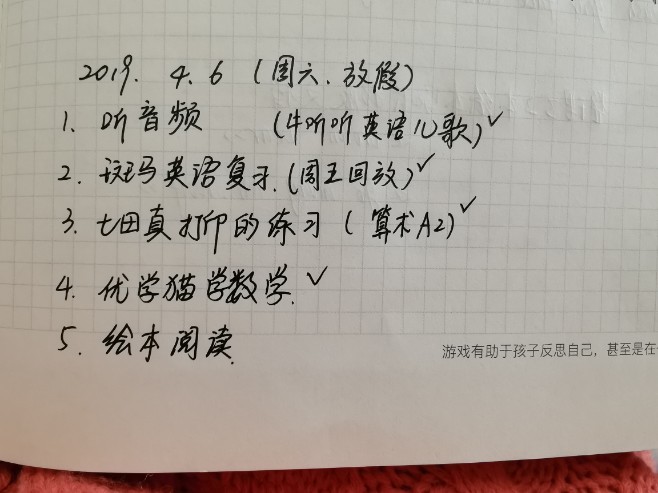 2019. 4. 6 (周六.放假)
1. 听音频 (牛听听英语儿歌)✓
2. 斑马英语复习.(周五回放)✓
3. 七田真打印的练习 (算术A2)✓
4. 优学猫学数学.✓
5. 绘本阅读.
游戏有助于孩子反思自己，甚至是在